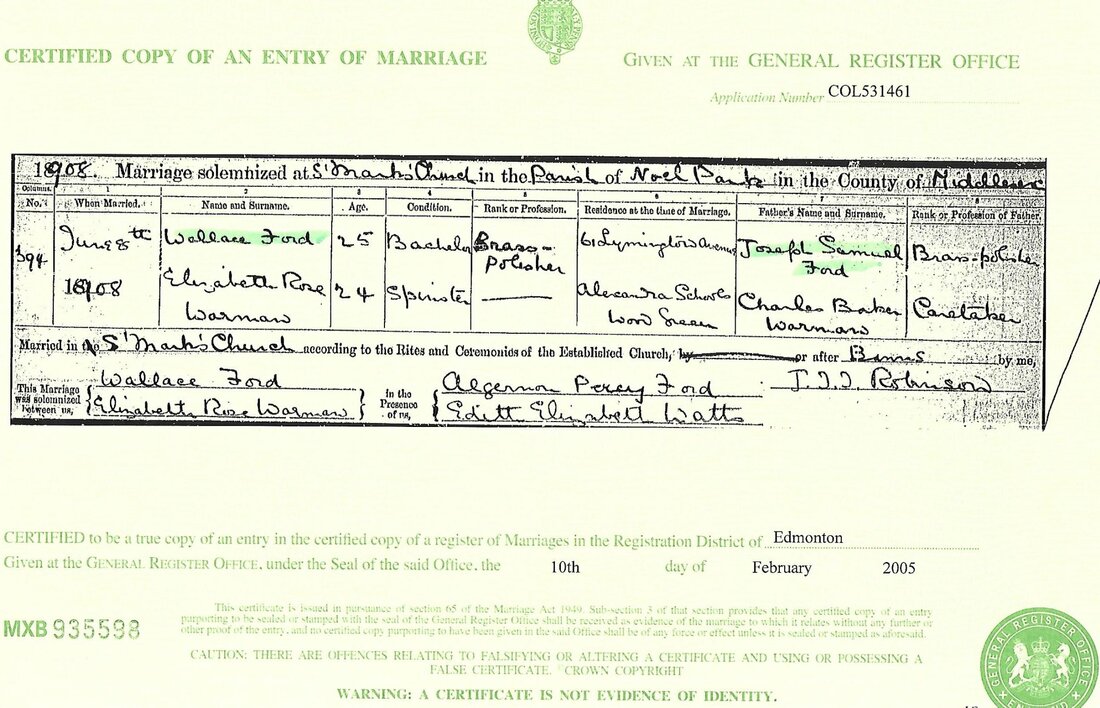 CERTIFIED COPY OF AN ENTRY OF MARRIAGE
GIVEN AT THE GENERAL REGISTER OFFICE
Application Number COL531461
1908. Marriage solemnized at St Mark's Church in the Parish of Noel Park in the County of Middlesex
Columns. 1 2 3 4 5 6 7 8
No. When Married. Name and Surname. Age. Condition. Rank or Profession. Residence at the time of Marriage. Father's Name and Surname. Rank or Profession of Father.
394 June 8th 1908 Wallace Ford 25 Bachelor Brass-polisher 61 Lymington Avenue Joseph Samuel Ford Brass-polisher
Elizabeth Rose Warman 24 Spinster Alexandra Schools Wood Green Charles Baker Warman Caretaker
Married in the St Mark's Church according to the Rites and Ceremonies of the Established Church, by or after Banns by me,
This Marriage was solemnized between us, Wallace Ford Elizabeth Rose Warman in the Presence of us, Algernon Percy Ford Edith Elizabeth Watts Robinson
CERTIFIED to be a true copy of an entry in the certified copy of a register of Marriages in the Registration District of Edmonton
Given at the GENERAL REGISTER OFFICE, under the Seal of the said Office, the 10th day of February 2005
MXB 935598
This certificate is issued in pursuance of section 65 of the Marriage Act 1949. Sub-section 3 of that section provides that any certified copy of an entry
purporting to be sealed or stamped with the seal of the General Register Office shall be received as evidence of the marriage to which it relates without any further or
other proof of the entry, and no certified copy purporting to have been given in the said Office shall be of any force or effect unless it is sealed or stamped as aforesaid.
CAUTION: THERE ARE OFFENCES RELATING TO FALSIFYING OR ALTERING A CERTIFICATE AND USING OR POSSESSING A
FALSE CERTIFICATE. CROWN COPYRIGHT
WARNING: A CERTIFICATE IS NOT EVIDENCE OF IDENTITY.
GENERAL REGISTER OFFICE